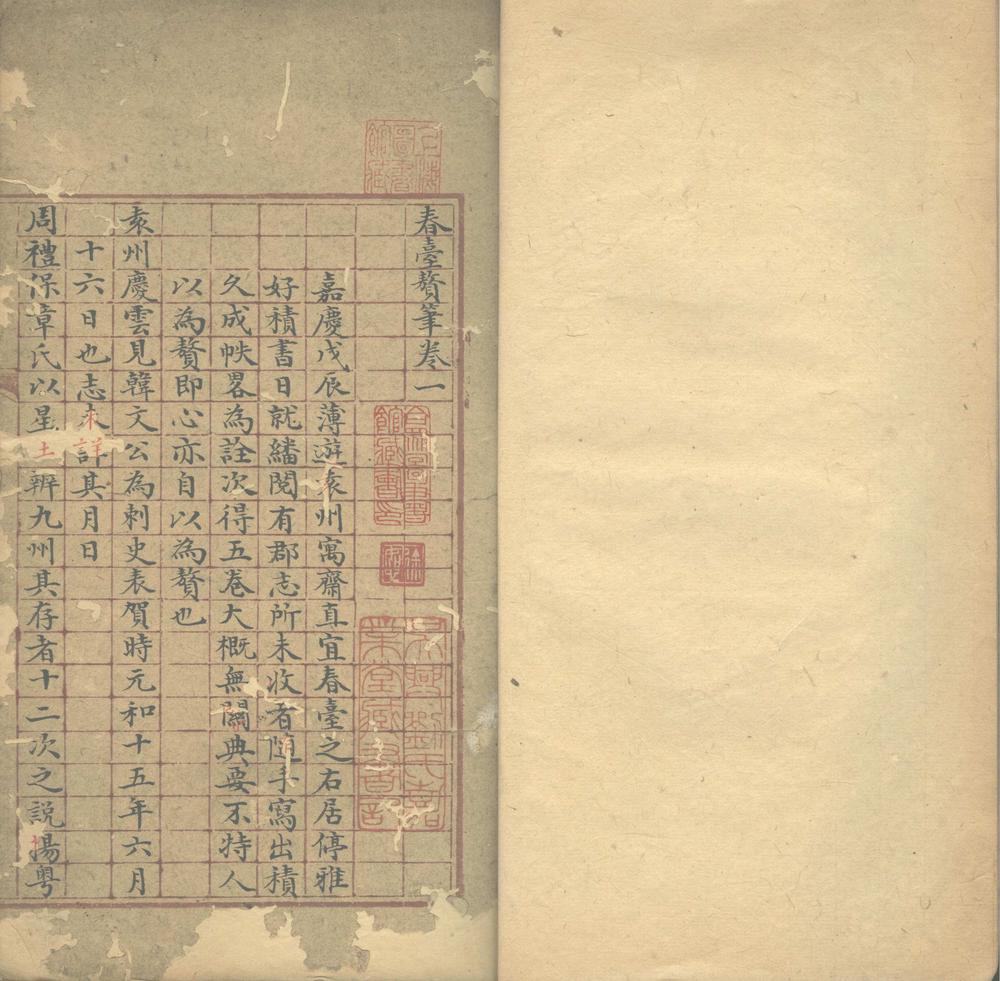 春臺贅筆卷一
嘉慶戊辰薄遊袁州寓齋直宜春臺之右居停雅
好積書日就繙閱有郡志所未收者隨手寫出積
久成帙畧為詮次得五卷大概無關典要不特人
以為贅即心亦自以為贅也
袁州慶雲見韓文公為刺史表賀時元和十五年六月
十六日也志未詳其月日
周禮保章氏以星土辨九州其存者十二次之說揚粤
吳興劉氏嘉
業堂藏書印